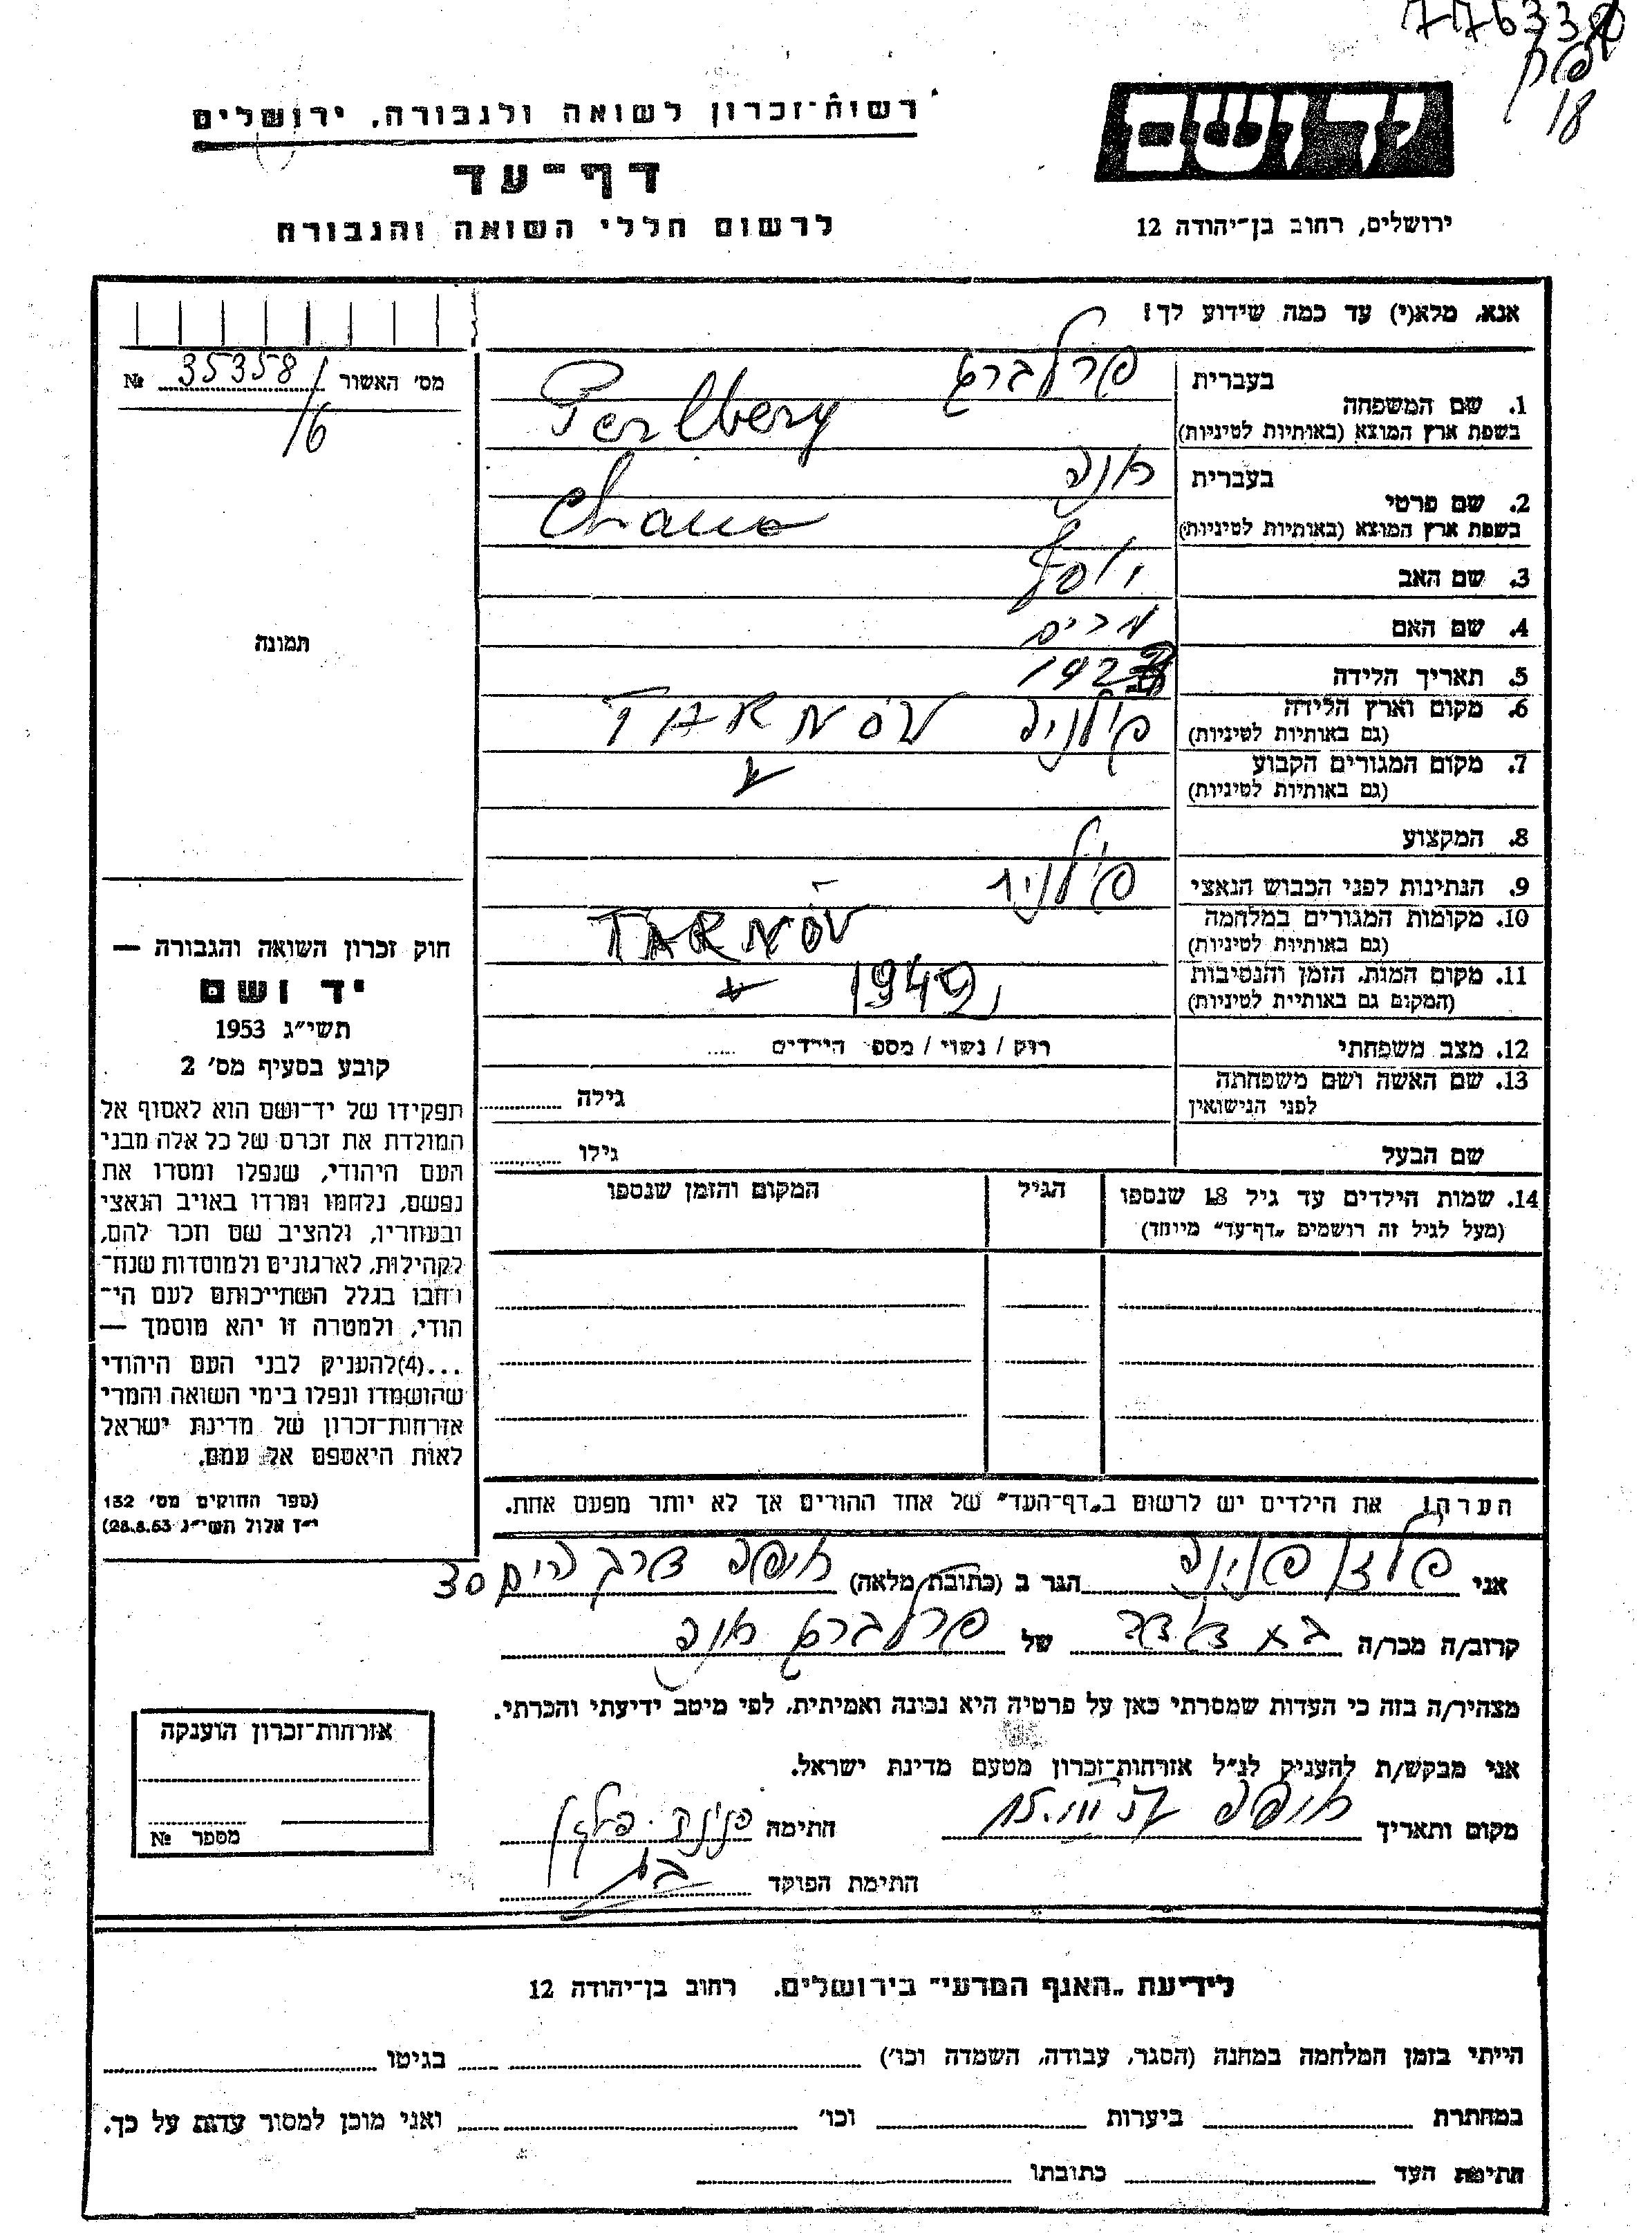 776330
18
רשות־זכרון לשואה ולגבורה, ירושלים
דף־עד
לרשום חללי השואה והגבורה
יד ושם
ירושלים, רחוב בן־יהודה 12
אנא, מלא(י) עד כמה שידוע לך!
מס׳ האשור 35358/16 №
תמונה
1. שם המשפחה
בעברית פרלברג
בשפת ארץ המוצא (באותיות לטיניות) Perlberg
2. שם פרטי
בעברית חנה
בשפת ארץ המוצא (באותיות לטיניות) Chana
3. שם האב יוסף
4. שם האם מרים
5. תאריך הלידה
6. מקום וארץ הלידה פולניה TARNÓV
(גם באותיות לטיניות)
7. מקום המגורים הקבוע
(גם באותיות לטיניות)
8. המקצוע
9. הנתינות לפני הכבוש הנאצי פולנית
10. מקומות המגורים במלחמה TARNÓV
(גם באותיות לטיניות)
11. מקום המות, הזמן והנסיבות 1942
(המקום גם באותיות לטיניות)
12. מצב משפחתי רוק / נשוי / מספ׳ הילדים .....
13. שם האשה ושם משפחתה
לפני הנישואין גילה
שם הבעל גילו
14. שמות הילדים עד גיל 18 שנספו הגיל המקום והזמן שנספו
(מעל לגיל זה רושמים „דף־עד״ מיוחד)
הערה! את הילדים יש לרשום ב„דף־העד״ של אחד ההורים אך לא יותר מפעם אחת.
חוק זכרון השואה והגבורה —
יד ושם
תשי״ג 1953
קובע בסעיף מס׳ 2
תפקידו של יד־ושם הוא לאסוף אל
המולדת את זכרם של כל אלה מבני
העם היהודי, שנפלו ומסרו את
נפשם, נלחמו ומרדו באויב הנאצי
ובעוזריו, ולהציב שם וזכר להם,
לקהילות, לארגונים ולמוסדות שנח־
רבו בגלל השתייכותם לעם הי־
הודי, ולמטרה זו יהא מוסמך —
...(4)להעניק לבני העם היהודי
שהושמדו ונפלו בימי השואה והמרי
אזרחות־זכרון של מדינת ישראל
לאות היאספם אל עמם.
(ספר החוקים מס׳ 132
י״ז אלול תשי״ג 28.8.53)
אני פנינה הגר ב (כתובת מלאה) חיפה דרך הים 30
קרוב/ה מכר/ה בת דודה של פרלברג חנה
מצהיר/ה בזה כי העדות שמסרתי כאן על פרטיה היא נכונה ואמיתית, לפי מיטב ידיעתי והכרתי.
אני מבקש/ת להעניק לנ״ל אזרחות־זכרון מטעם מדינת ישראל.
מקום ותאריך חיפה חתימה
חתימת הפוקד
אזרחות־זכרון הוענקה
מספר №
לידיעת „האגף המדעי״ בירושלים, רחוב בן־יהודה 12
הייתי בזמן המלחמה במחנה (הסגר, עבודה, השמדה וכו׳) בגיטו
במחתרת ביערות וכו׳ ואני מוכן למסור עדות על כך.
חתימת העד כתובתו